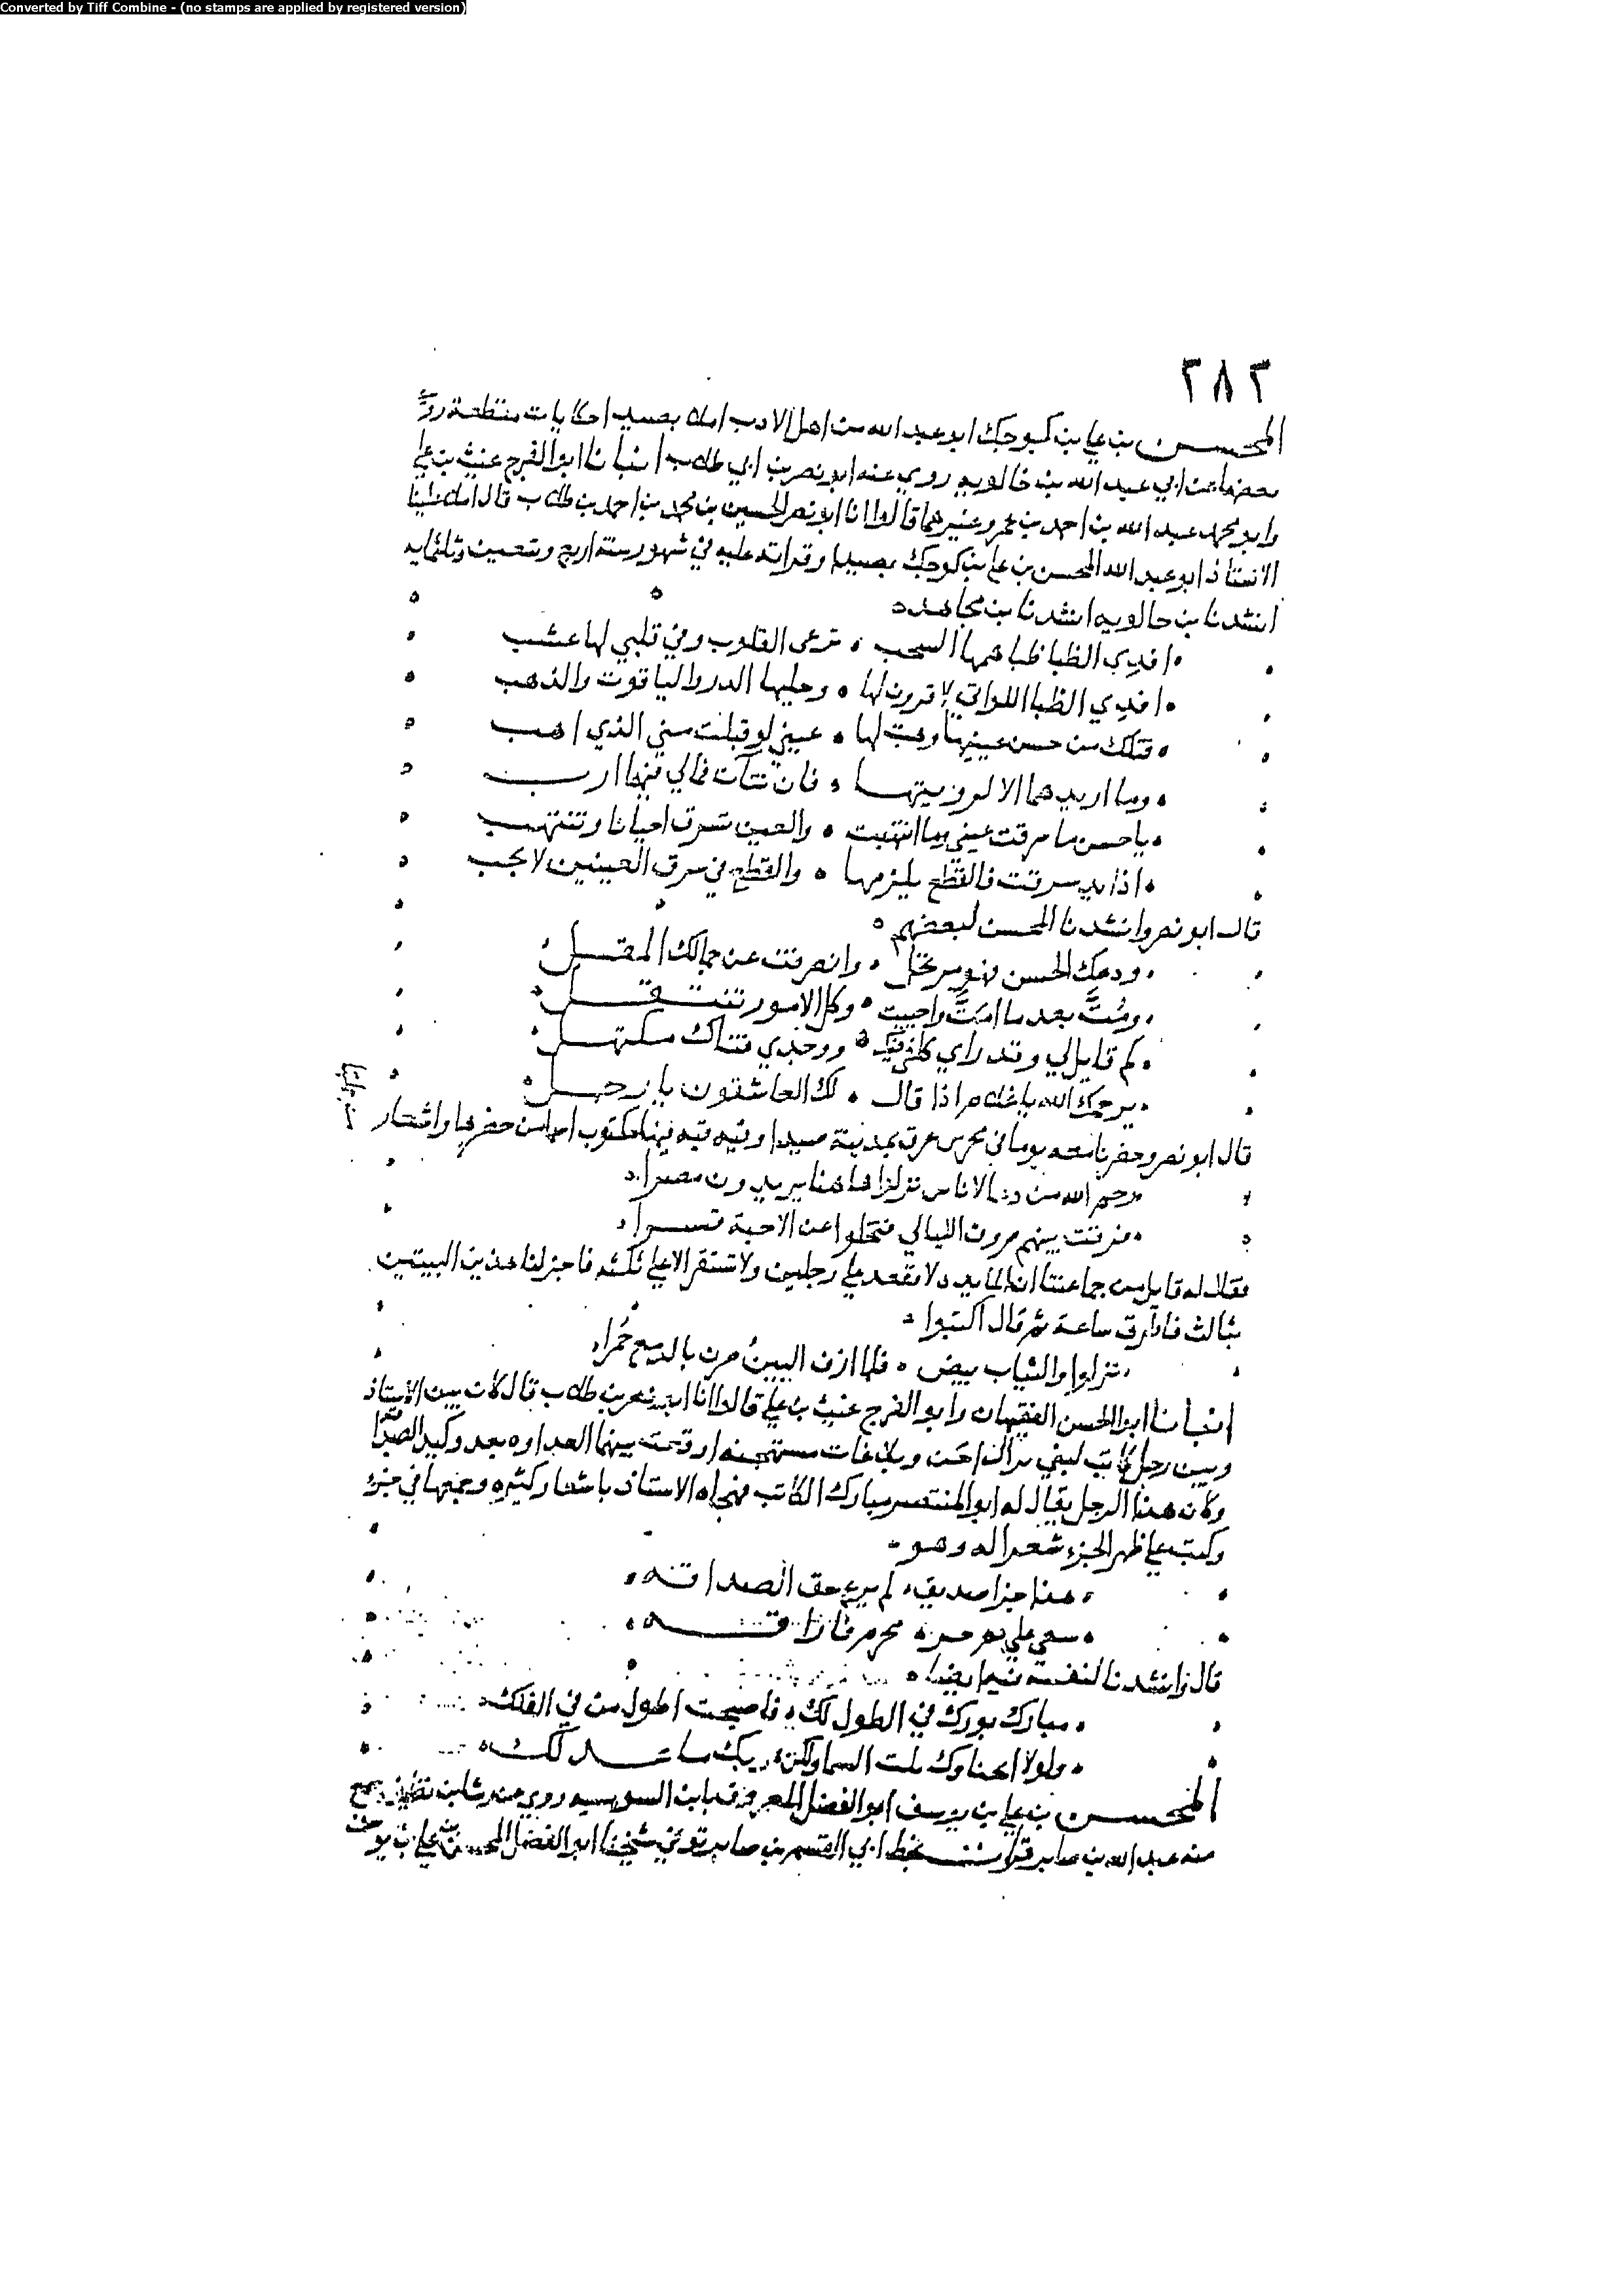 Converted by Tiff Combine - (no stamps are applied by registered version)
٢٨٢
المحسن بن علي بن كوجك ابو عبد الله من اهل الادب املا بصيدا حكايات منقطعة روي
بعضها عن ابي عبد الله بن خالويه روي عنه ابو نصر بن ابي طلاب انبانا ابو الفرج غيث بن علي
وابو محمد عبد الله بن احمد بن عمر وغيرهما قالوا انا ابو نصر الحسين بن محمد بن احمد بن طلاب قال املا علينا
الاستاذ ابو عبد الله المحسن بن علي بن كوجك بصيدا وقراته عليه في شهور سنة اربع وتسعين وثلثمايه
انشدنا بن خالويه انشدنا بن مجاهد
افدي الظبا ظبا همها السحب ترعى القلوب وفي قلبي لها عشب
افدي الظبا اللواتي لا قرون لها وحليها الدر والياقوت والذهب
من حسن عينيها وهبت لها عيني لو قبلت مني الذي اهب
وما اريدهما الا لرويتها فان نتات فمالي فيهما ارب
يا حسن ما سرقت عيني وما انتهبت والعين تسرق احيانا وتنتهب
اذا يد سرقت فالقطع يلزمها والقطع في سرق العينين لا يجب
قال ابو نصر وانشدنا المحسن لبعضهم
ودعك الحسن فهو مرتحل وانصرفت عن جمالك المقل
ومت بعد ما امت واحييت وكل الامور تنتقل
كم قايل لي وقد راي ووجدي
يرحمك الله يا غلام اذا قال لك العاشقون يا رجل
قال ابو نصر وحضرنا معه يوما في محرس عرق بمدينة صيدا وفيه قبه فيها مكتوب اسما من حضرها واشعار
رحم الله من دعا لاناس نزلوا هاهنا يريدون مصرا
فرقت بينهم صروف الليالي فتخلوا عن الاحبة قسرا
فقال له قايل من جماعتنا ان المايده لا تقعد علي رجلين ولا تستقر الا علي ثلثه فاجز لنا هذين البيتين
بثالث فاطرق ساعة ثم قال اكتبوا
نزلوا والثياب بيض فلما ازف البين صرن بالدمع حمرا
انبانا ابو الحسن الفقيهان وابو الفرج غيث بن علي قالوا انا ابو نصر بن طلاب قال كان بين الاستاذ
وبين رجل كاتب وبلاغات مستهجنه اوقعت بينهما العداوه بعد وكيد الصداقه
وكان هذا الرجل يقال له ابو المنتصر مبارك الكاتب فهجاه الاستاذ باشعار كثيره وجمعها في جزء
وكتب علي ظهر الجزء شعرا له وهو
هذا جزا صديق لم يرع حق الصداقه
سعي علي دم حر محرم فاراقه
قال وانشدنا لنفسه فيه ايضا
مبارك بورك في الطول لك فاصبحت اطول من في الفلك
ولولا انحناوك نلت السما ولكن ربك ما عدلك
المحسن بن علي بن يوسف ابو الفضل المعروف بابن روي عن رشا بن نظيف سمع
منه عبد الله بن صابر قرات بخط ابي القسم بن صابر توفي شيخنا ابو الفضل المحسن بن علي بن يوسف